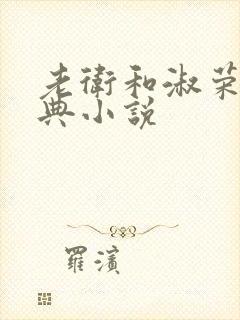 老衛和淑荣
典小説
羅濱